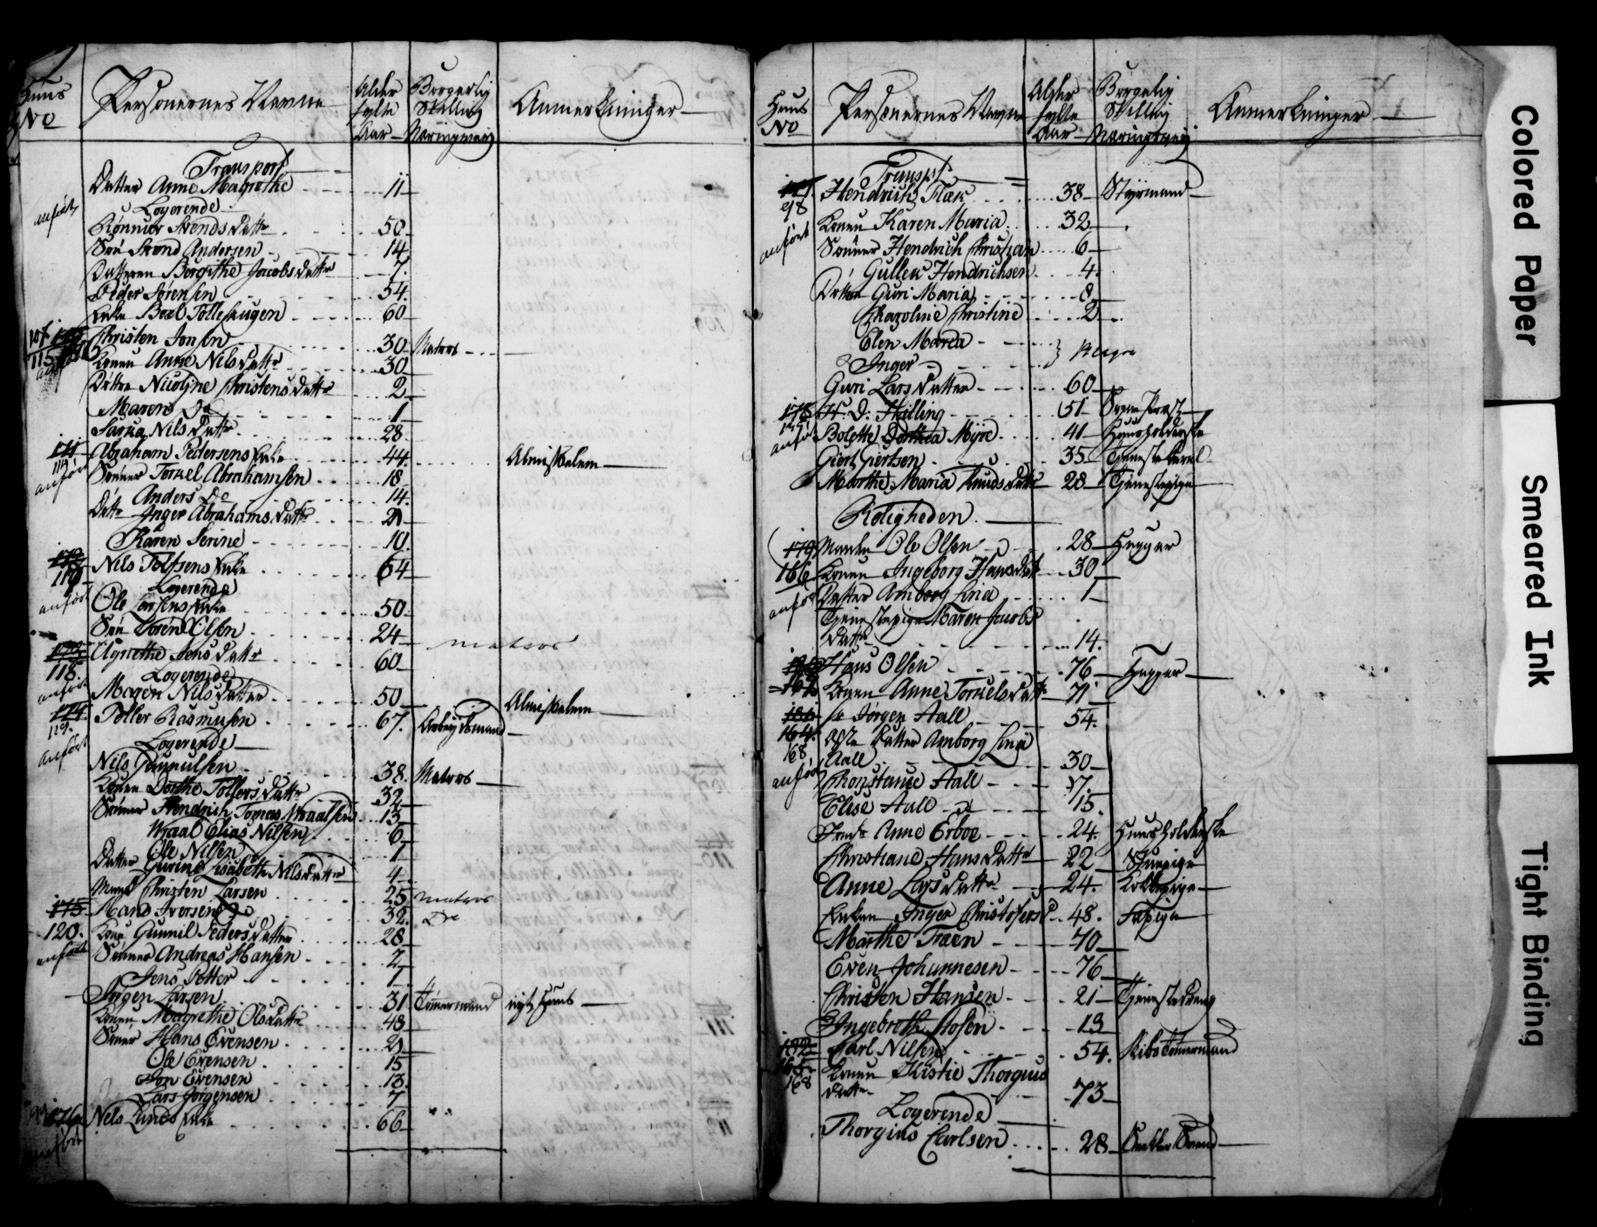 Huus No Personernes Navne Alder fylte Aar Borgerlig Stilling Næringsvej Anmerkninger
Transport
Datter Anne Magrethe 11
Logerende
anført
Svends Datter 50
Søn Svend Andersen 14
Datteren Borgithe Jacobs Datter 7
Peder Sørensen 54
Enke 60
Christen Jonsen 30 Matros
115
Konen Anne Nils Datter 30
Datter Nicoline Christens Datter 2
Maren Do 1
Nils Datter 28
Abraham Pedersens Enke 44 Almisselem
anført
Sønner Torkel Abrahamsen 18
Anders Do 14
Datter Inger Abrahams Datter 21
Karen Serine 10
Nils Tolfsens Enke 64
Logerende
anført
Ole Larsens Enke 50
Søn Ole Olsen 24 matros
Agnethe Jens Datter 60
118
Logerende
anført
Magen Nils Datter 50 Almisselem
Toller Rasmusen 67 Arbeydsmand
119
Logerende
anført
Nils Gunnulsen 38 Matros
Konen Dorthe Tollers Datter 32
Sønner Hendrich Tomas 13
Elias Nilsen 6
Ole Nilsen 1
Datter Gurine Lisabeth Nils Datter 4
Mand Christen Larsen 25 matros
175 Mand Iversen 32 Do
120 Kone Gunnil Peders Datter 28
anført Sønner Andreas Hansen 2
Jens Petter 1
Jngen Larsen 31 Tømmermand
Konen Magrethe Ols Datter 48
Sønner Hans Evensen 21
Ole Evensen 15
Jon Evensen 13
Lars Jørgensen 7
176 Nels Lunds Enke 66
Huus No Personernes Navne Alder fylte Aar Borgerlig Stilling Næringsvej Anmerkninger
Transpt
Hendrich Flæk 38 Styrmand
98
Konen Karen Maria 32
anført
Sønner Hendrich Christian 6
Gullek Hendrichsen 4
Datter Guri Maria 8
Karoline Christine 2
Elen Maria
Inger
Guri Lars Datter 60
178 H. D. Halling 51 Sogne Prest
Bolette Dorthea Myre 41 Huusholderske
anført
Giert Giertsen 35 Tienestekarl
Marthe Maria Knuds Datter 28 Tienestepige
Roligheden
179 Manden Ole Olsen 28 Hugger
166 Konen Ingeborg Hans Datter 30
anført Datter Amborg Lina 1
Tienestepige Maren Jacobs
Datter 14
Hans Olsen 76 Hugger
167 Konen Anne Torkels Datter 71
Hr Jørgen Aall 54
164
ældste Datter Amborg Lina
168 Aall 30
anført
Constance Aall 17
Elise Aall 15
Anne Erboe 24 Huusholderske
Christiane Hans Datter 22 Stuepige
Anne Lars Datter 24 Kokkepige
Enken Inger Christofers D. 48 Fæpige
Marthe Træen 70
Even Johannesen 76
Christen Hansen 21 Tienestedreng
Ingebreth Hofen 13
Carl Nilsen 54 Skibs Tømmermand
165
168
Konen Kistie Thorgius
Datter 73
Logerende
Thorgius Carlsen 28
Colored Paper
Smeared Ink
Tight Binding